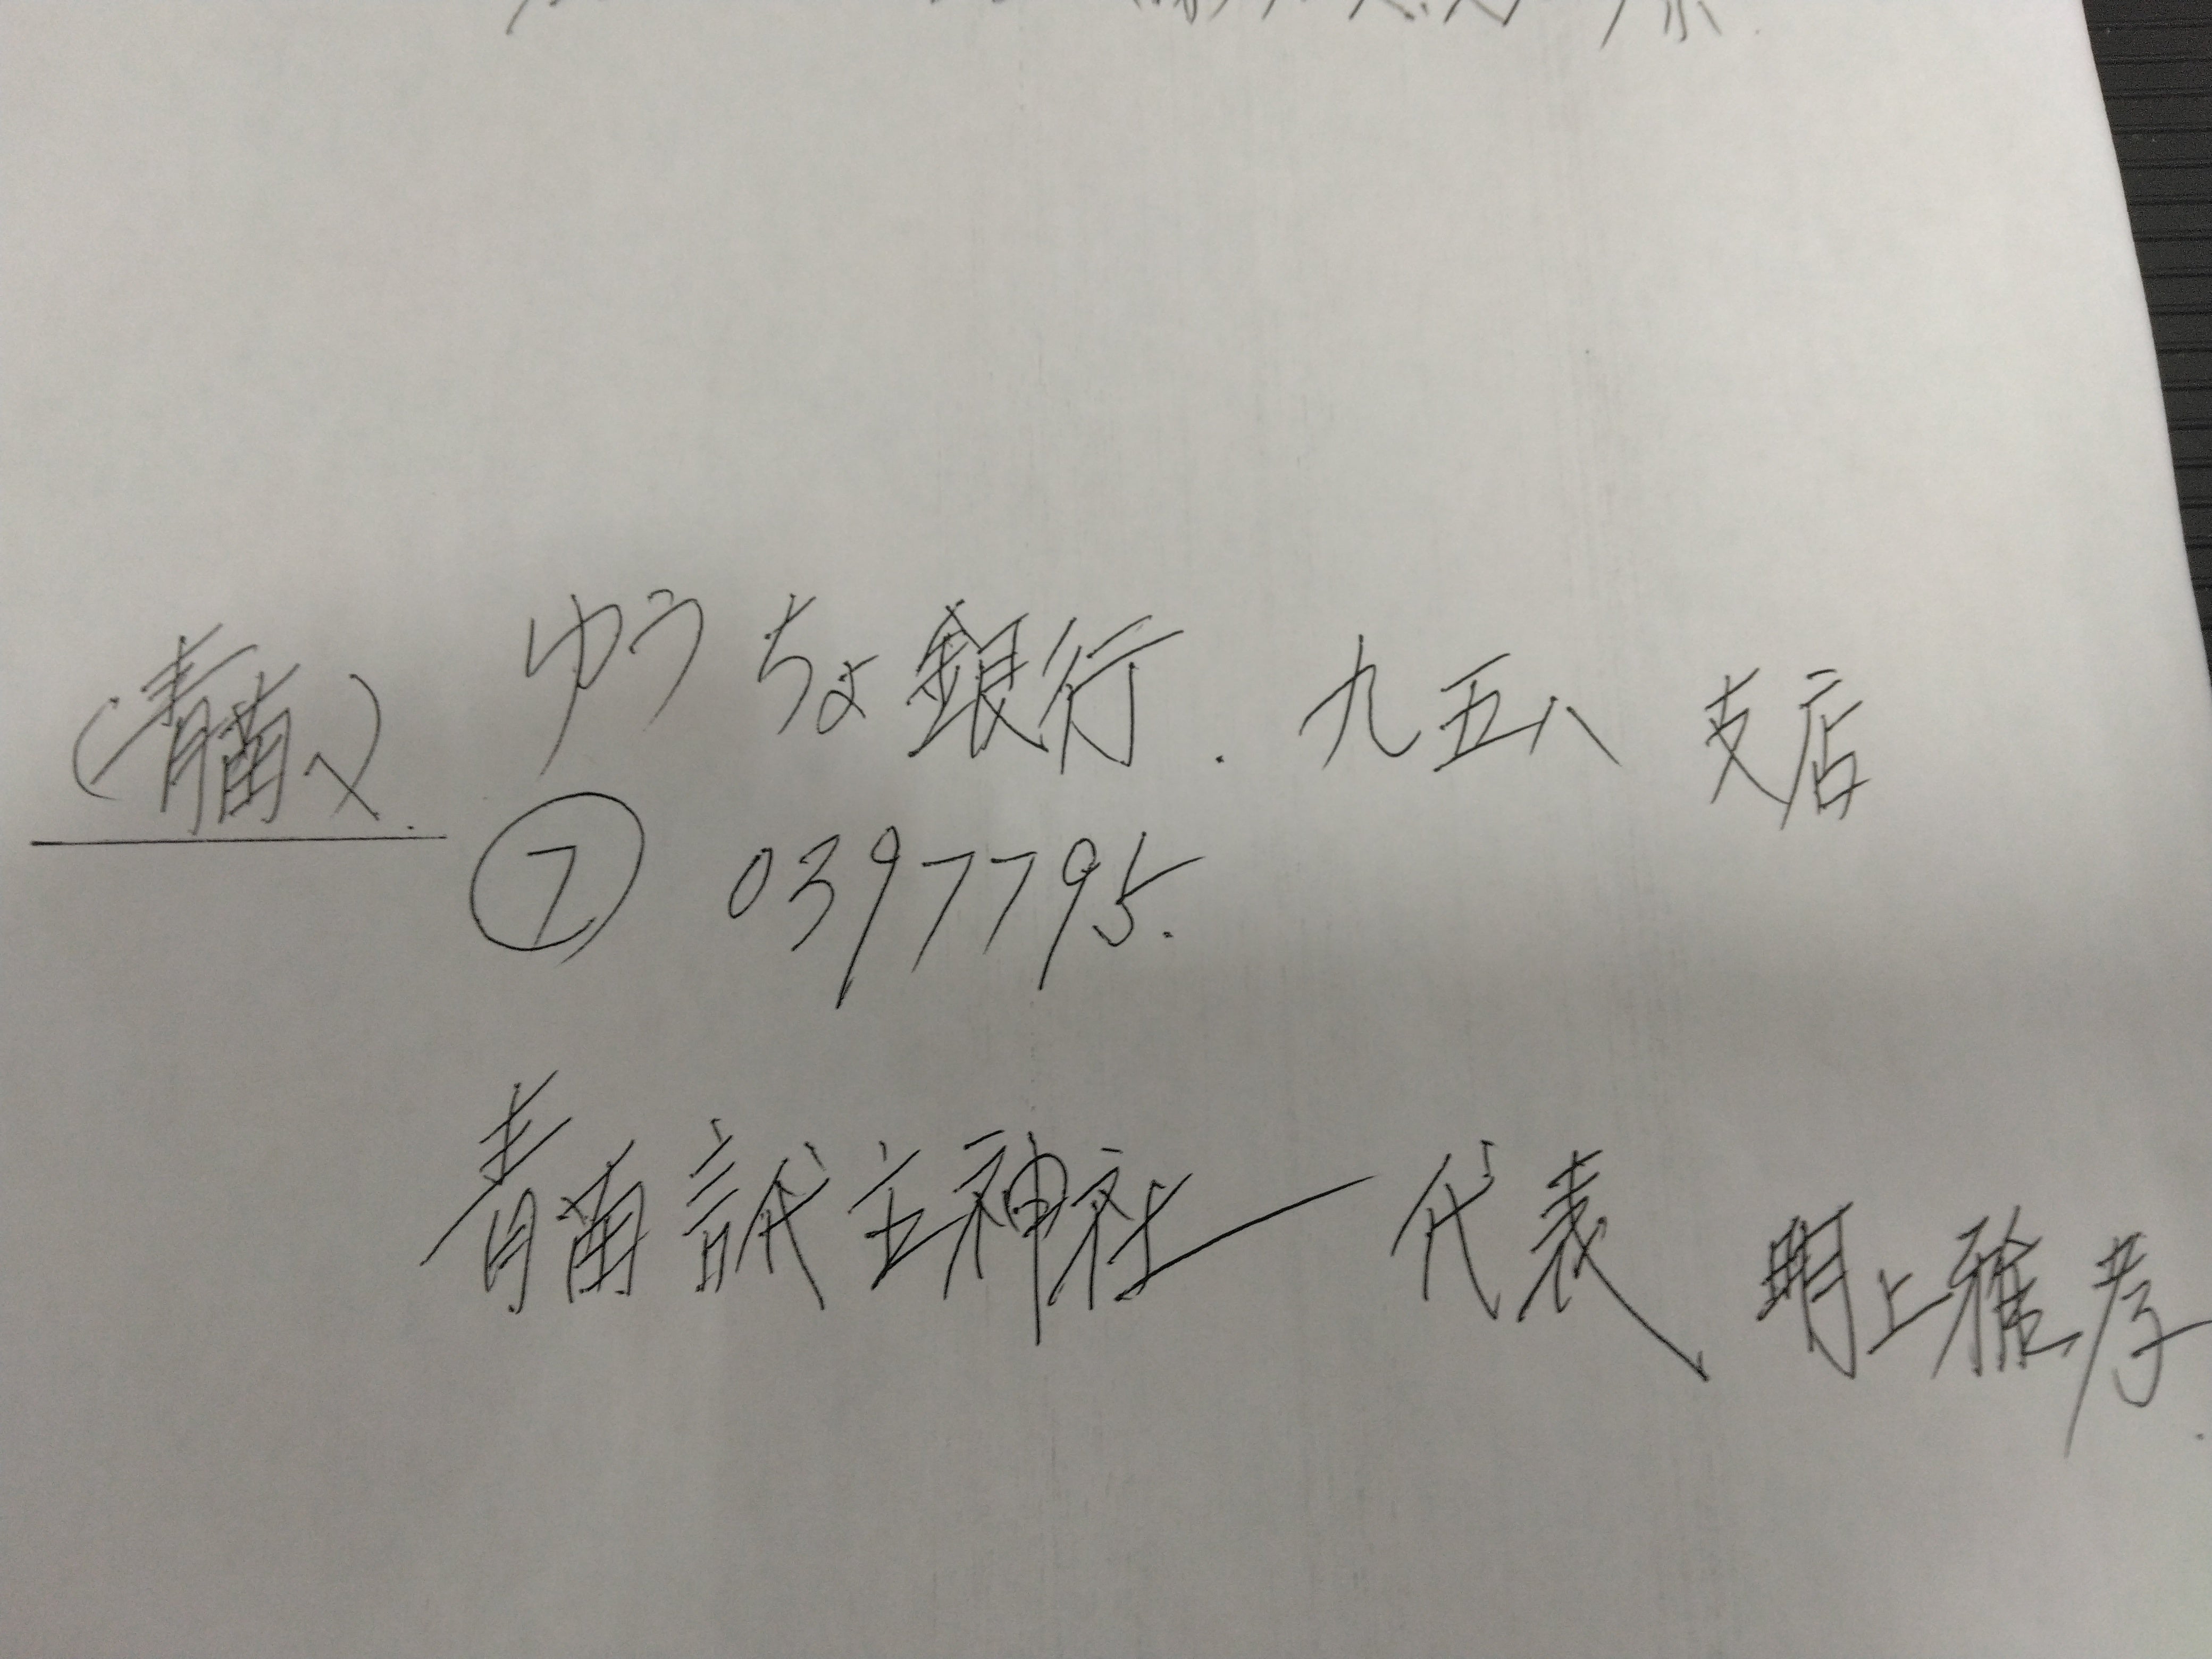 (青苗へ).
ゆうちょ銀行. 九五八 支店
㋫ 0397795.
青苗言代主神社 代表 明上雅孝.